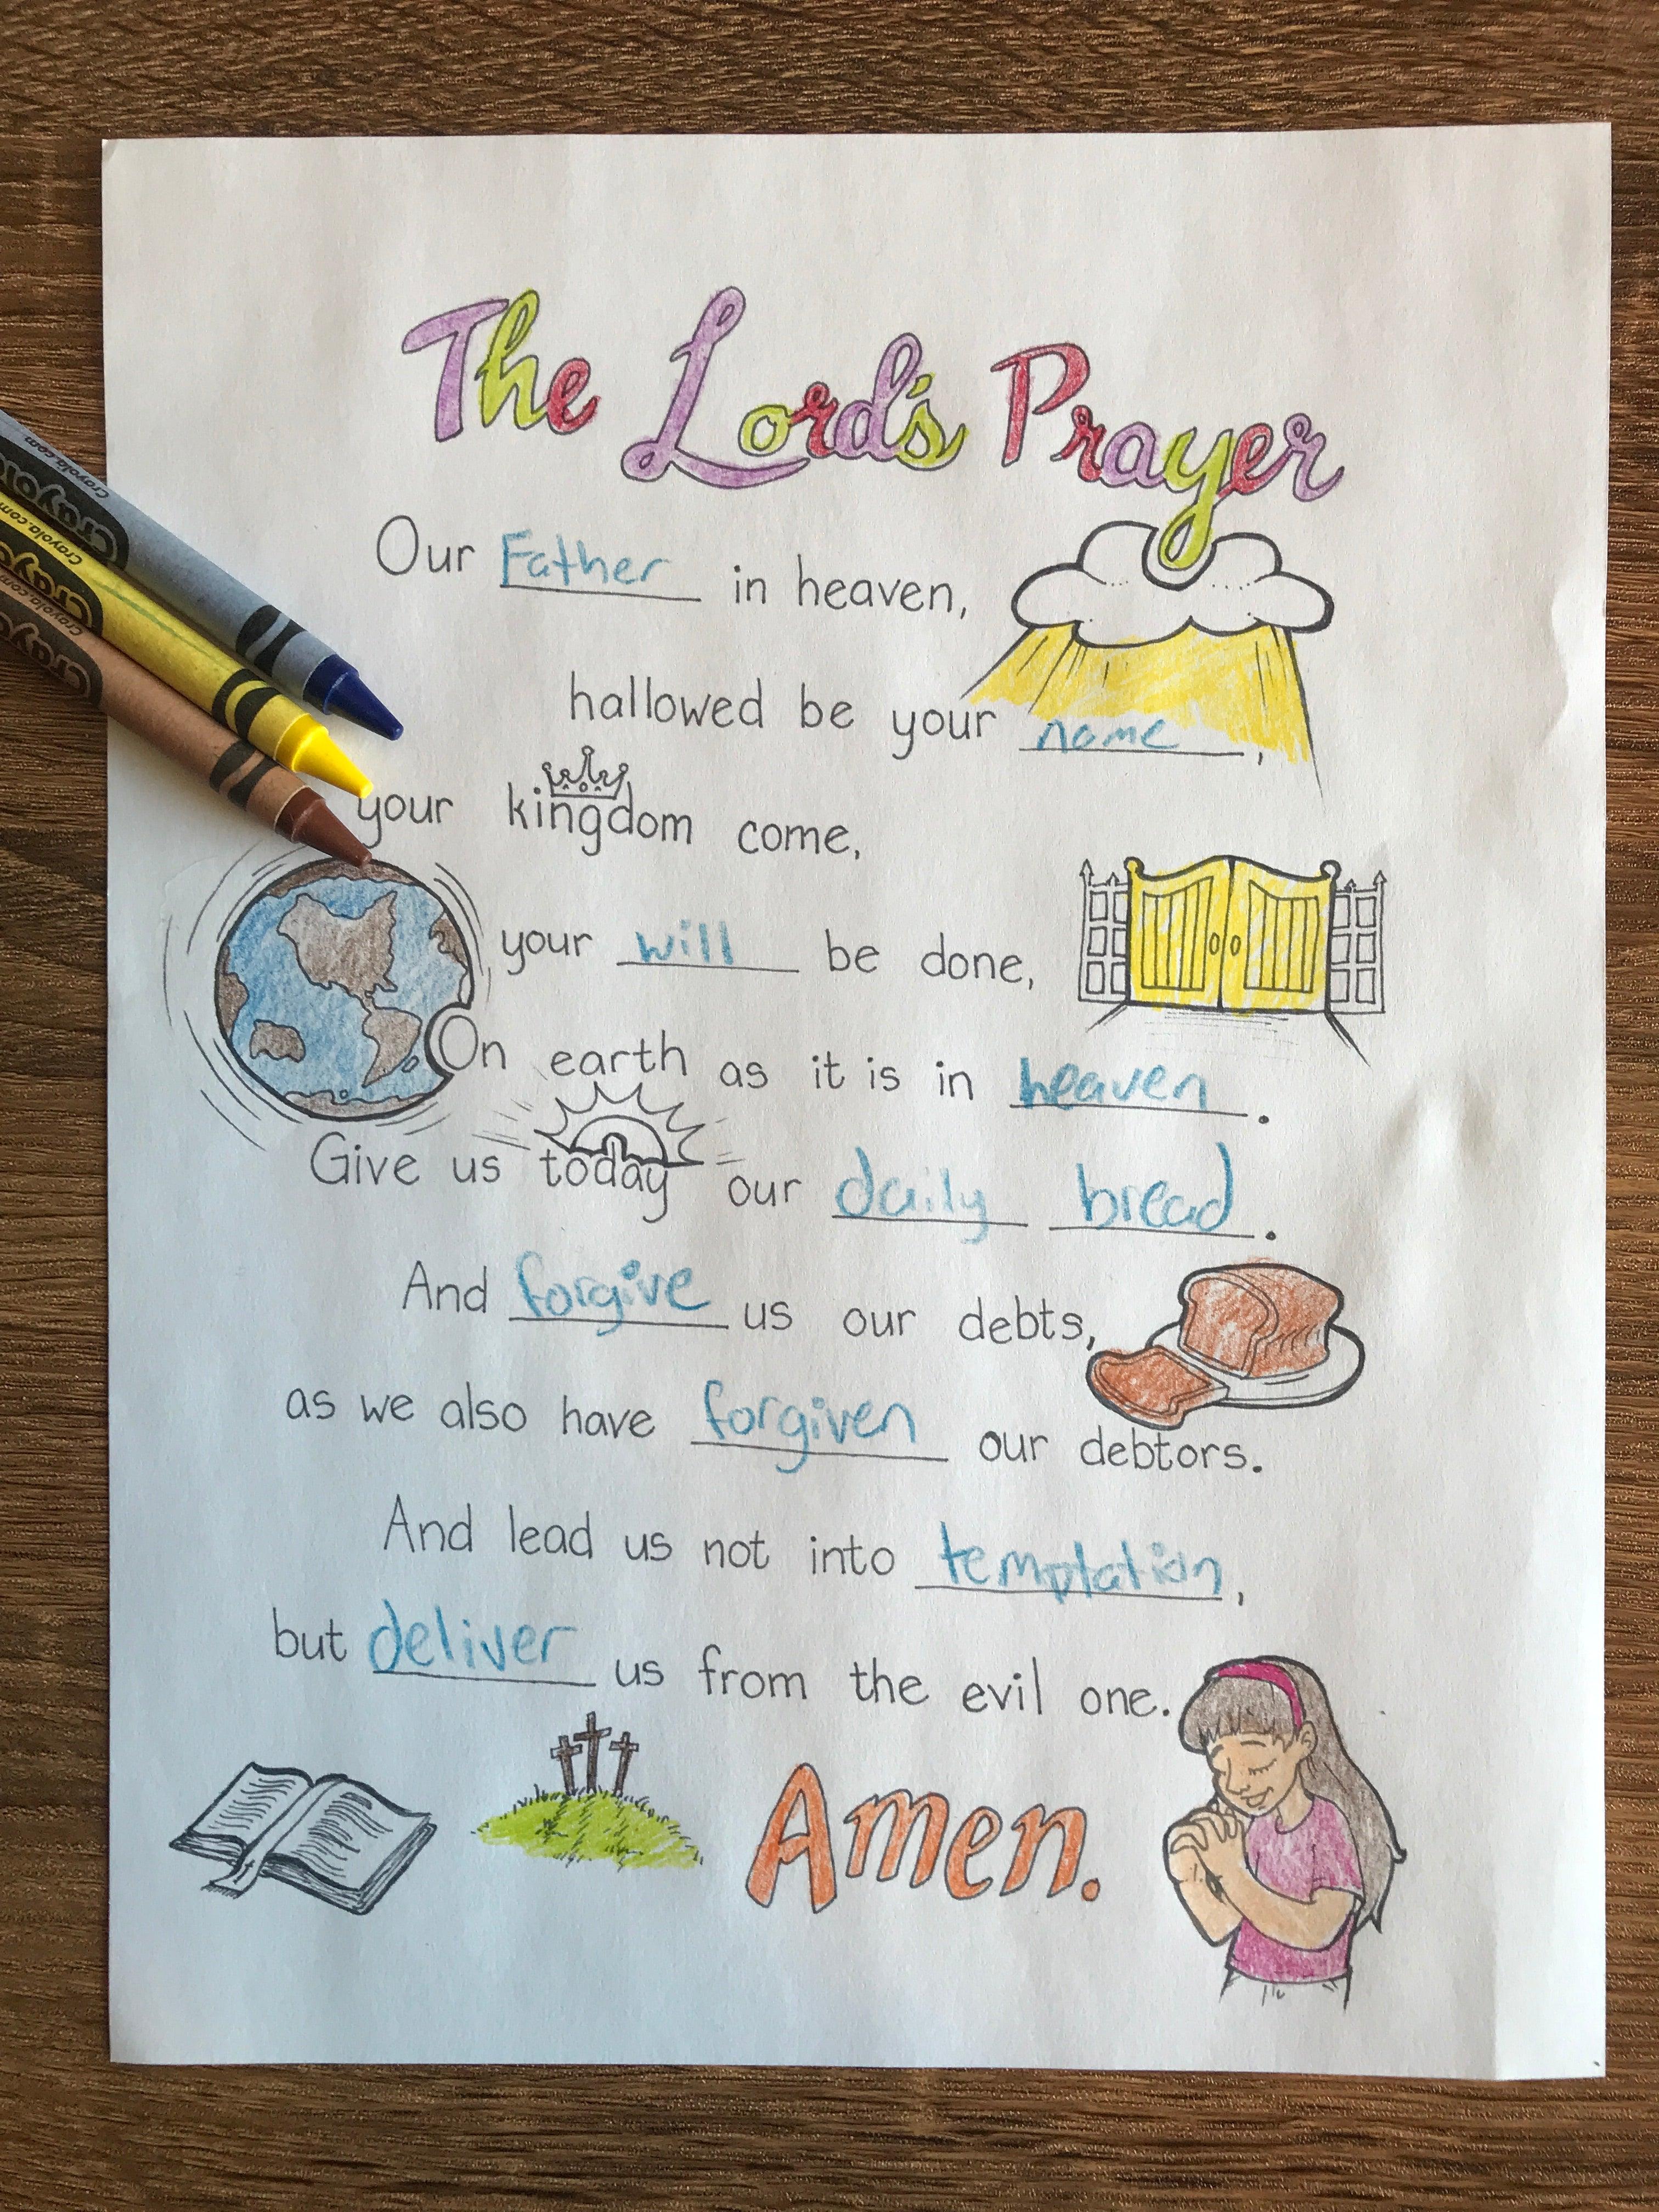 The Lord's Prayer
Our Father in heaven,
hallowed be your name,
your kingdom come,
your will be done,
On earth as it is in heaven.
Give us today our daily bread.
And forgive us our debts,
as we also have forgiven our debtors.
And lead us not into temptation,
but deliver us from the evil one.
Amen.
Crayola.com
Crayola
Crayola.com
Crayola
Crayola.com
Crayola